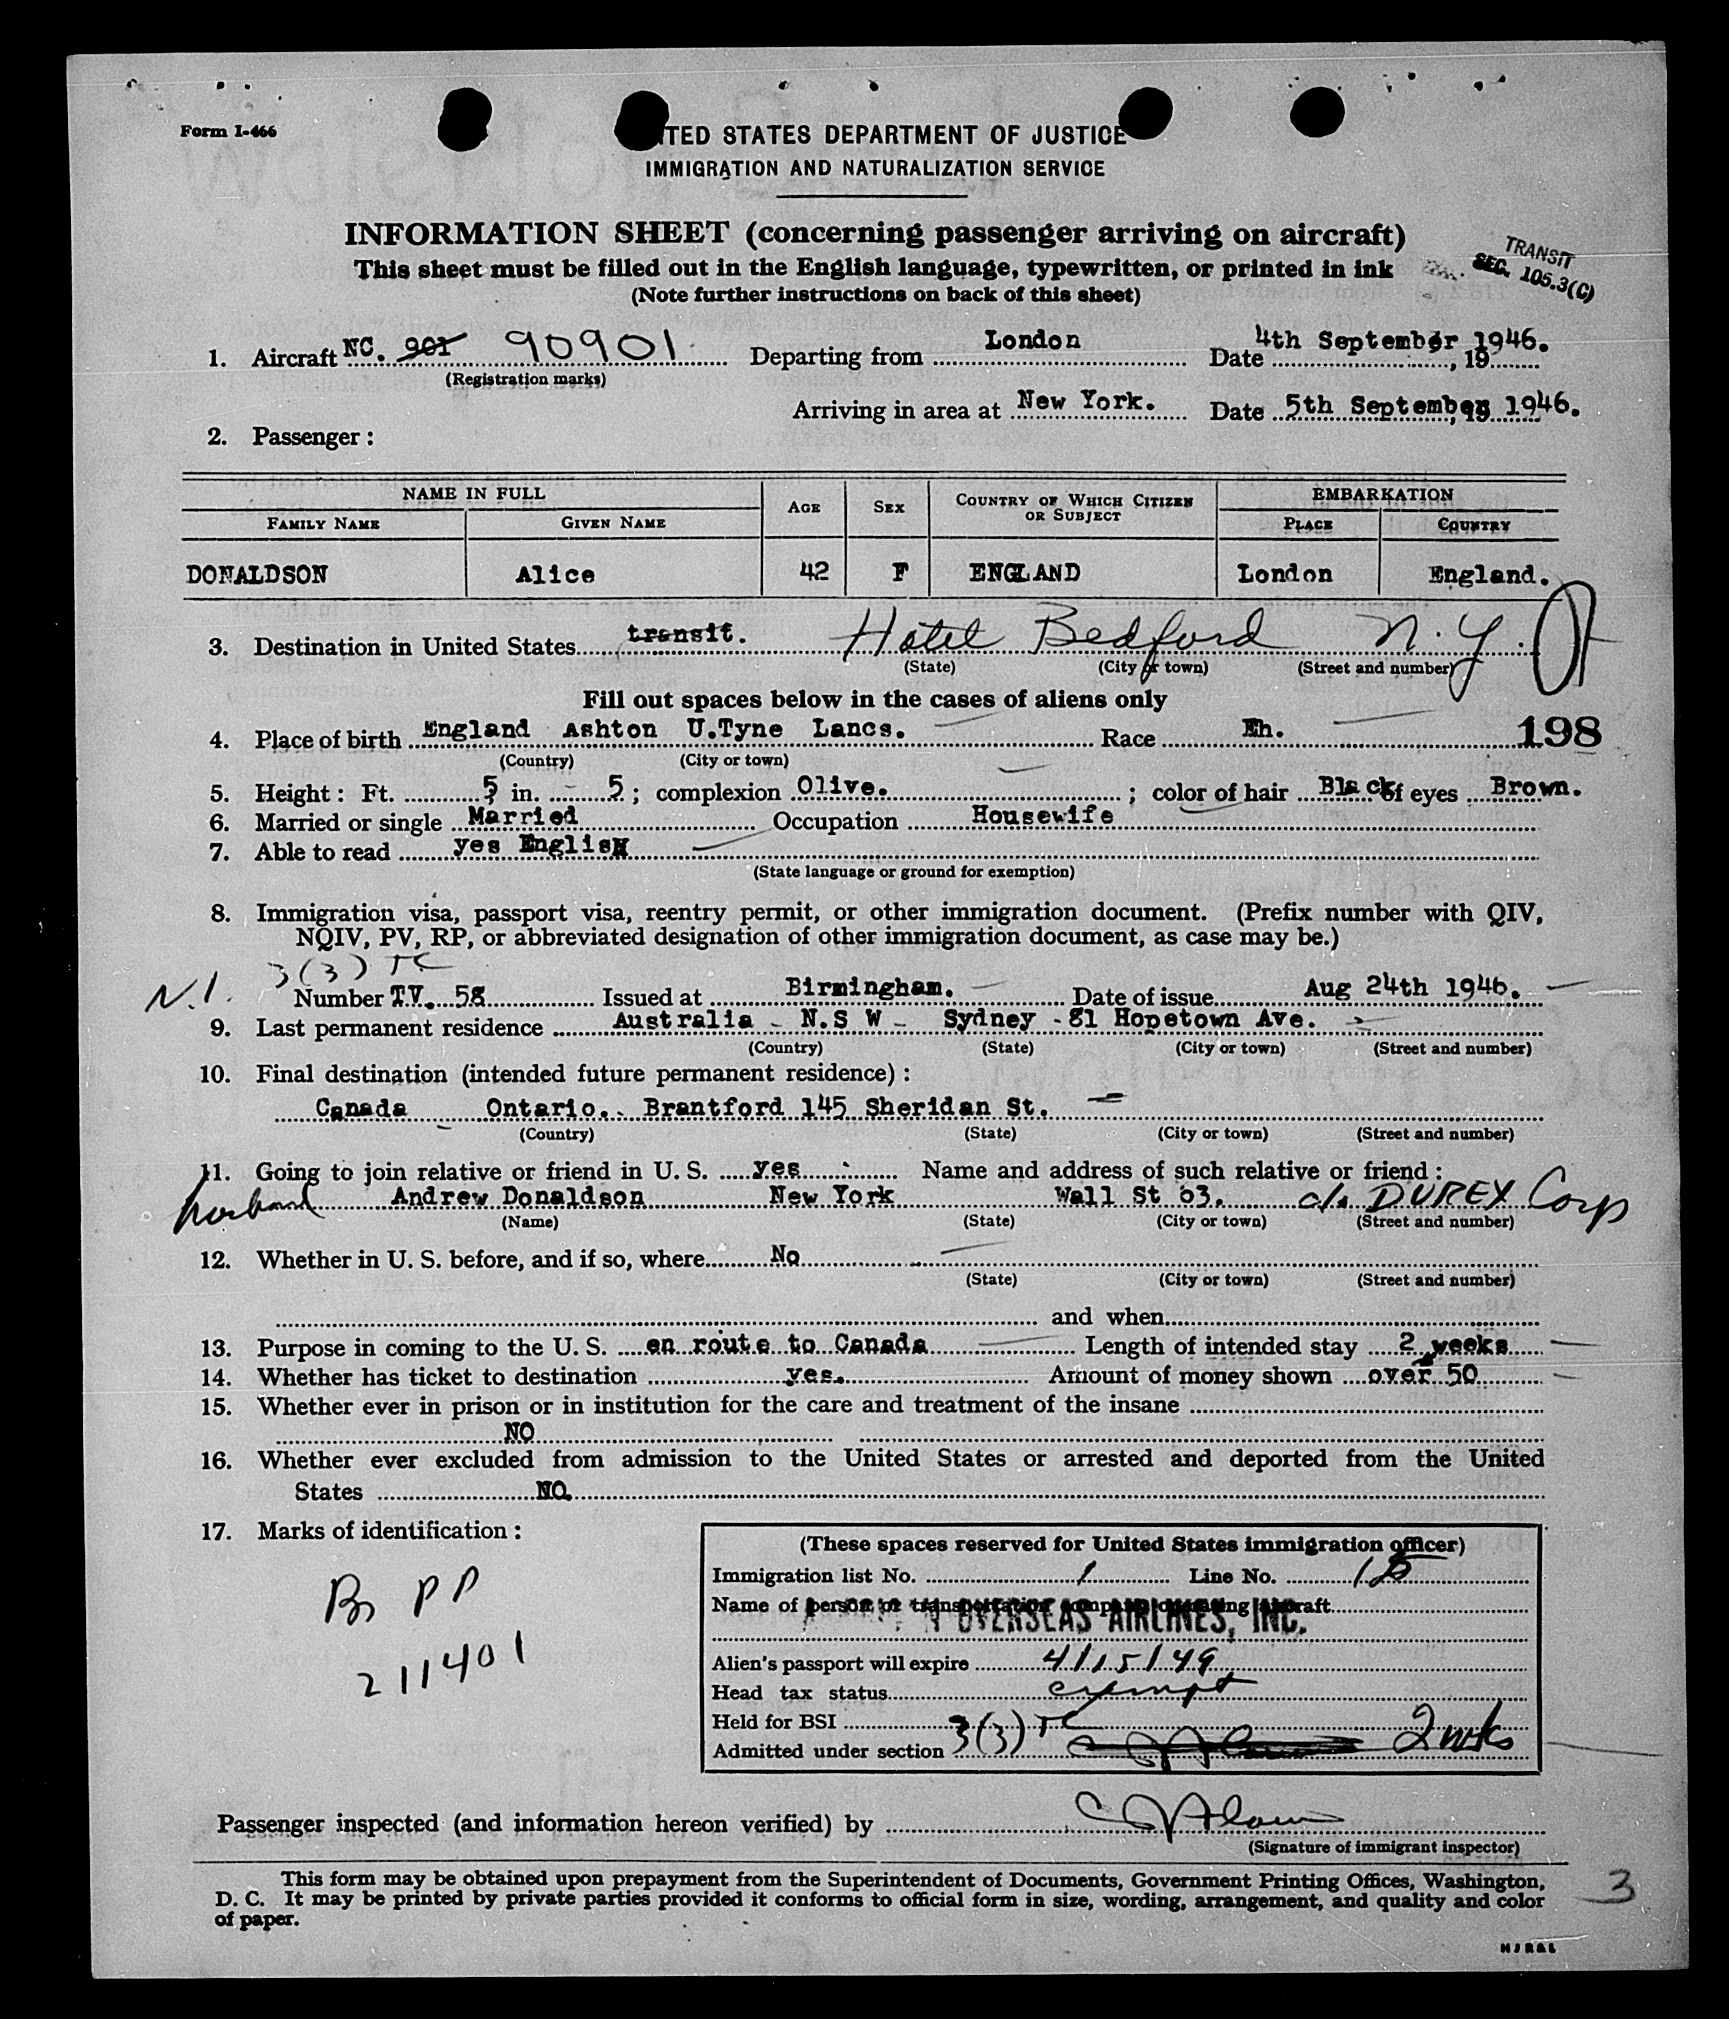 Form I-466
ITED STATES DEPARTMENT OF JUSTICE
IMMIGRATION AND NATURALIZATION SERVICE
INFORMATION SHEET (concerning passenger arriving on aircraft)
This sheet must be filled out in the English language, typewritten, or printed in ink
(Note further instructions on back of this sheet)
TRANSIT
SEC. 105.3(C)
1. Aircraft NC. 901 90901 Departing from London Date 4th September 1946. , 19
(Registration marks)
Arriving in area at New York. Date 5th September 1946. , 19
2. Passenger :
NAME IN FULL AGE SEX COUNTRY OF WHICH CITIZEN OR SUBJECT EMBARKATION
FAMILY NAME GIVEN NAME PLACE COUNTRY
DONALDSON Alice 42 F ENGLAND London England.
3. Destination in United States transit. Hotel Bedford N.Y.
(State) (City or town) (Street and number)
Fill out spaces below in the cases of aliens only
4. Place of birth England Ashton U.Tyne Lancs. Race Eh. 198
(Country) (City or town)
5. Height : Ft. 5 in. 5 ; complexion Olive. ; color of hair Black of eyes Brown.
6. Married or single Married Occupation Housewife
7. Able to read yes English
(State language or ground for exemption)
8. Immigration visa, passport visa, reentry permit, or other immigration document. (Prefix number with QIV,
NQIV, PV, RP, or abbreviated designation of other immigration document, as case may be.)
3(3) TC
N.I. Number TV. 58 Issued at Birmingham. Date of issue Aug 24th 1946.
9. Last permanent residence Australia - N.S W - Sydney - 81 Hopetown Ave.
(Country) (State) (City or town) (Street and number)
10. Final destination (intended future permanent residence) :
Canada Ontario. Brantford 145 Sheridan St.
(Country) (State) (City or town) (Street and number)
11. Going to join relative or friend in U. S. yes Name and address of such relative or friend :
husband Andrew Donaldson New York Wall St 63. c/o DUREX Corp
(Name) (State) (City or town) (Street and number)
12. Whether in U. S. before, and if so, where No
(State) (City or town) (Street and number)
and when
13. Purpose in coming to the U. S. en route to Canada Length of intended stay 2 weeks
14. Whether has ticket to destination yes. Amount of money shown over 50
15. Whether ever in prison or in institution for the care and treatment of the insane
NO
16. Whether ever excluded from admission to the United States or arrested and deported from the United
States NO.
17. Marks of identification :
Br PP
211401
(These spaces reserved for United States immigration officer)
Immigration list No. 1 Line No.
Name of person or transportation company operating aircraft
OVERSEAS AIRLINES, INC.
Alien's passport will expire 4/15/49
Head tax status exempt
Held for BSI
Admitted under section 3(3) TC 2 wks
Passenger inspected (and information hereon verified) by
(Signature of immigrant inspector)
This form may be obtained upon prepayment from the Superintendent of Documents, Government Printing Offices, Washington,
D. C. It may be printed by private parties provided it conforms to official form in size, wording, arrangement, and quality and color
of paper.
3